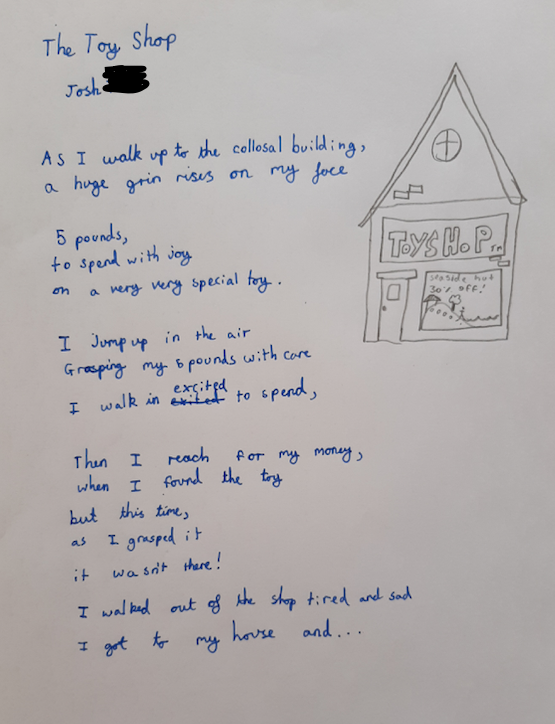 The Toy Shop
Josh
As I walk up to the collosal building,
a huge grin rises on my face
5 pounds,
to spend with joy
on a very very special toy.
I Jump up in the air
Grasping my 5 pounds with care
I walk in exited excited to spend,
Then I reach for my money,
when I found the toy
but this time,
as I grasped it
it wasn't there!
I walked out of the shop tired and sad
I got to my house and...
TOYSHOP TM
seaside hut
30% off!